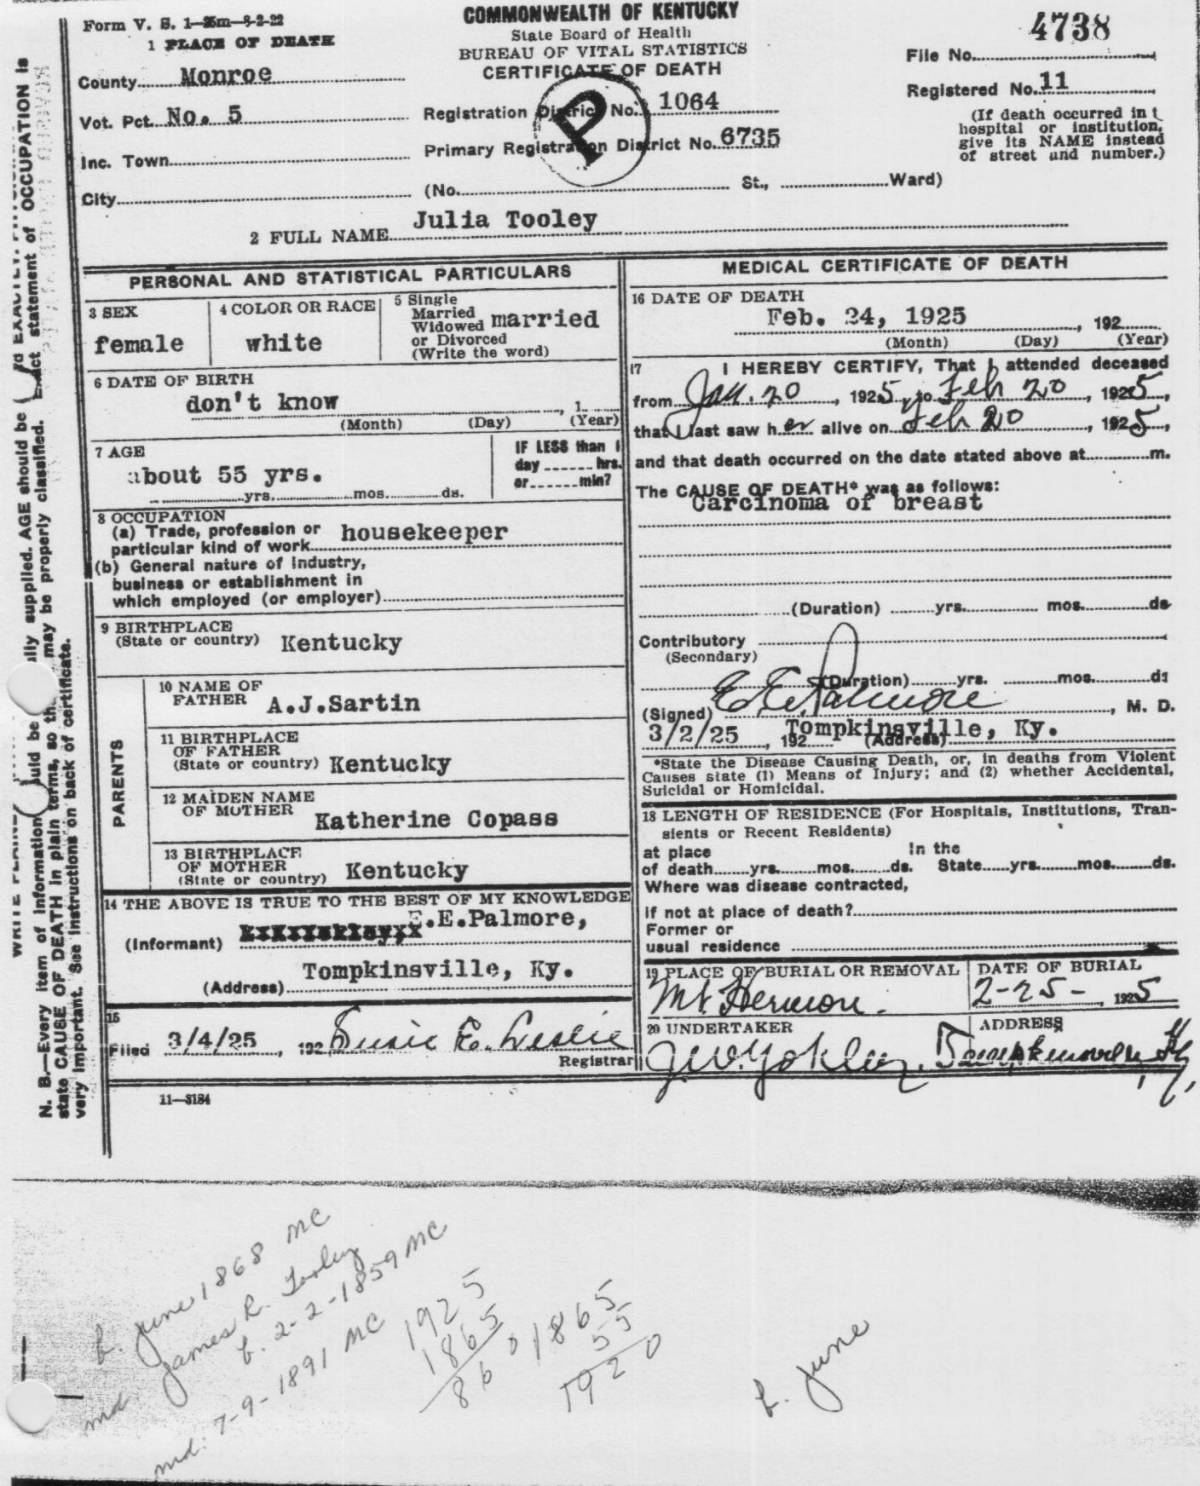 Form V. S. 1—25m—8-2-22
COMMONWEALTH OF KENTUCKY
State Board of Health
BUREAU OF VITAL STATISTICS
CERTIFICATE OF DEATH
4738
File No.
Registered No. 11
(If death occurred in
hospital or institution,
give its NAME instead
of street and number.)
1 PLACE OF DEATH
County Monroe
Vot. Pct. No. 5
Registration District No. 1064
Inc. Town
Primary Registration District No. 6735
P
City
(No. St., Ward)
2 FULL NAME Julia Tooley
PERSONAL AND STATISTICAL PARTICULARS
3 SEX
female
4 COLOR OR RACE
white
5 Single
Married
Widowed
or Divorced
(Write the word)
married
6 DATE OF BIRTH
don't know , 1
(Month) (Day) (Year)
7 AGE
about 55 yrs.
yrs. mos. ds.
IF LESS than 1
day hrs.
or min?
8 OCCUPATION
(a) Trade, profession or
particular kind of work housekeeper
(b) General nature of industry,
business or establishment in
which employed (or employer)
9 BIRTHPLACE
(State or country) Kentucky
PARENTS
10 NAME OF
FATHER A.J.Sartin
11 BIRTHPLACE
OF FATHER
(State or country) Kentucky
12 MAIDEN NAME
OF MOTHER Katherine Copass
13 BIRTHPLACE
OF MOTHER
(State or country) Kentucky
14 THE ABOVE IS TRUE TO THE BEST OF MY KNOWLEDGE
(Informant) E.E.Palmore,
(Address) Tompkinsville, Ky.
15
Filed 3/4/25 , 192 Susie E. Leslie
Registrar
11—3184
MEDICAL CERTIFICATE OF DEATH
16 DATE OF DEATH
Feb. 24, 1925 , 192
(Month) (Day) (Year)
17 I HEREBY CERTIFY, That I attended deceased
from Jan. 20 , 1925, to Feb 20 , 1925,
that I last saw her alive on Feb 20 , 1925,
and that death occurred on the date stated above at m.
The CAUSE OF DEATH* was as follows:
Carcinoma of breast
(Duration) yrs. mos. ds
Contributory
(Secondary)
(Duration) yrs. mos. ds
(Signed) E.E. Palmore , M. D.
3/2/25 , 192 (Address) Tompkinsville, Ky.
*State the Disease Causing Death, or, in deaths from Violent
Causes state (1) Means of Injury; and (2) whether Accidental,
Suicidal or Homicidal.
18 LENGTH OF RESIDENCE (For Hospitals, Institutions, Tran-
sients or Recent Residents)
at place In the
of death yrs. mos. ds. State yrs. mos. ds.
Where was disease contracted,
if not at place of death?
Former or
usual residence
19 PLACE OF BURIAL OR REMOVAL
Mt Hermon.
DATE OF BURIAL
2-25- , 1925
20 UNDERTAKER
J.W. Yokley,
ADDRESS
Tompkinsville, Ky,
N. B.—Every item of information should be supplied. AGE should be EXACTLY.
state CAUSE OF DEATH in plain terms, so that may be properly classified. Exact statement of OCCUPATION is
very important. See instructions on back of certificate.
b. June 1868 MC
md. James R. Tooley
b. 2-2-1859 MC
md. 7-9-1891 MC
1925
1865
860
1865
55
1920
b. June